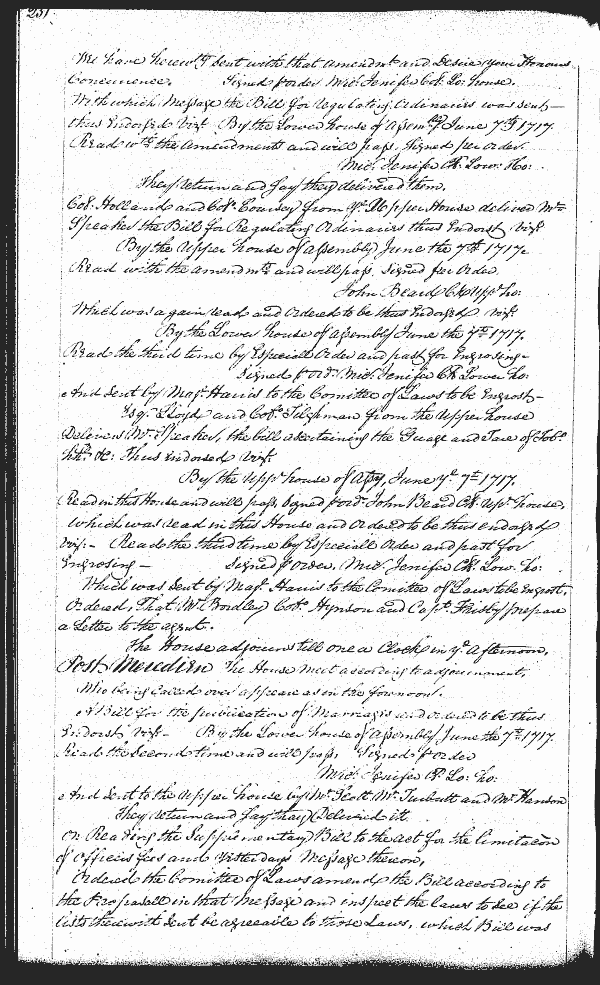 231
We have herewth sent with that amendmt and Desire your Honours
Concurrence. Signed p order Mich: Jenifer Clk Lo: house.
With which Message the Bill for regulating Ordinaries was sent
thus Endorsed vizt By the Lower house of Assembly June 7th 1717.
Read wth the amendments and will pass, signed per order
Mich: Jenifer Clk Low: Ho:
They return and say they delivered them.
Coll Holland and Coll Coursey from ye Upper House deliver Mr
Speaker the Bill for Regulating Ordinaries thus Endorst vizt
By the Upper house of Assembly June the 7th 1717.
Read with the amendmts and will pass. Signed per Order.
John Beard Clk Upp: ho:
Which was again read and ordered to be thus Endorsed vizt
By the Lower house of Assembly June the 7th 1717.
Read the third time by Especiall Order and past for Engrosing
Signed p ordr Mich: Jenifer Clk Lower ho:
And sent by Majr Harris to the Comittee of Laws to be Engrost
Esqr Lloyd and Coll Tilghman from the Upper house
Delivers Mr Speaker, the bill ascertaining the Guage and Tare of Tobo
hhds &c: Thus Endorsed vizt
By the Uppr house of Assy, June ye 7th 1717.
Read in this House and will pass, Signed p ordr John Beard Clk Uppr house,
Which was read in this House and Ordered to be thus endorsed
vizt Read the third time by Especiall Order and past for
Engrosing Signed p order, Mich: Jenifer Clk Low: ho:
Which was sent by Majr Harris to the Comittee of Laws to be Engrost,
Ordered, That Mr Bordley Coll Hynson and Capt Frisby prepare
a Letter to the agent.
The House adjourns till one a Clock in ye afternoon,
Post Meridien The House meet according to adjournment,
Who being called over appear as in the forenoon.
A Bill for the publication of Marriages and ordered to be thus
Endorst vizt By the Lower house of Assembly June the 7th 1717
Read the Second time and will pass, Signed p Order
Mich: Jenifer Clk Lo: ho:
And Sent to the Upper house by Mr Scott Mr Turbutt and Mr Hanson
They return and say they Delivered it.
On Reading the Supplementary Bill to the act for the limitacon
of officers fees and Yesterdays Message thereon,
Ordered the Comittee of Laws amend the Bill according to
the Proposall in that Message and inspect the laws to see if the
lists therewith sent be agreeable to those Laws, which Bill was